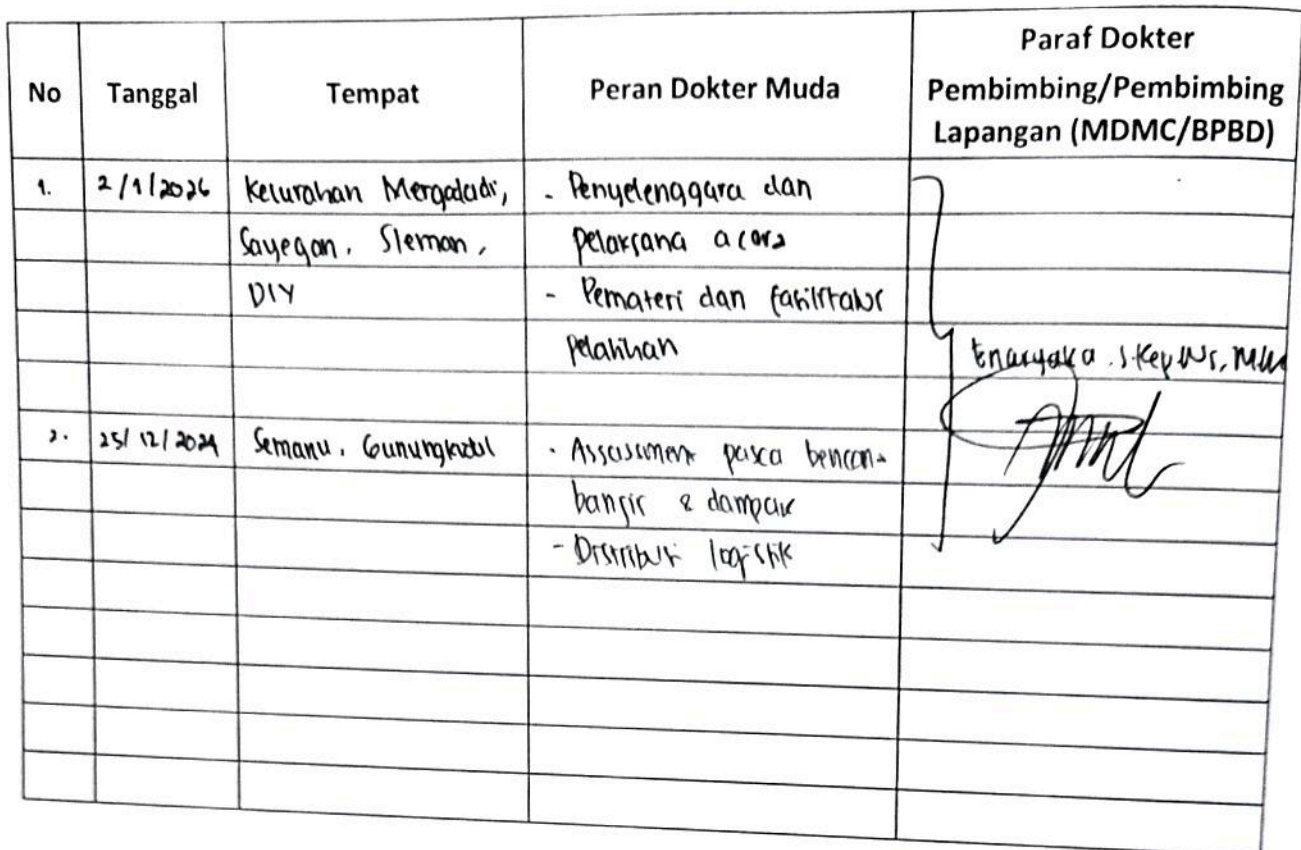 No Tanggal Tempat Peran Dokter Muda Paraf Dokter
Pembimbing/Pembimbing
Lapangan (MDMC/BPBD)
1. 2/1/2026 Kelurahan Mergodadi, - Penyelenggara dan
Sayegan, Sleman, pelaksana acara
DIY - Pemateri dan fasilitator
pelatihan
2. 25/12/ Semanu, Gunungkidul - Assasment pasca bencana
banjir & dampak
- Distribusi logistik